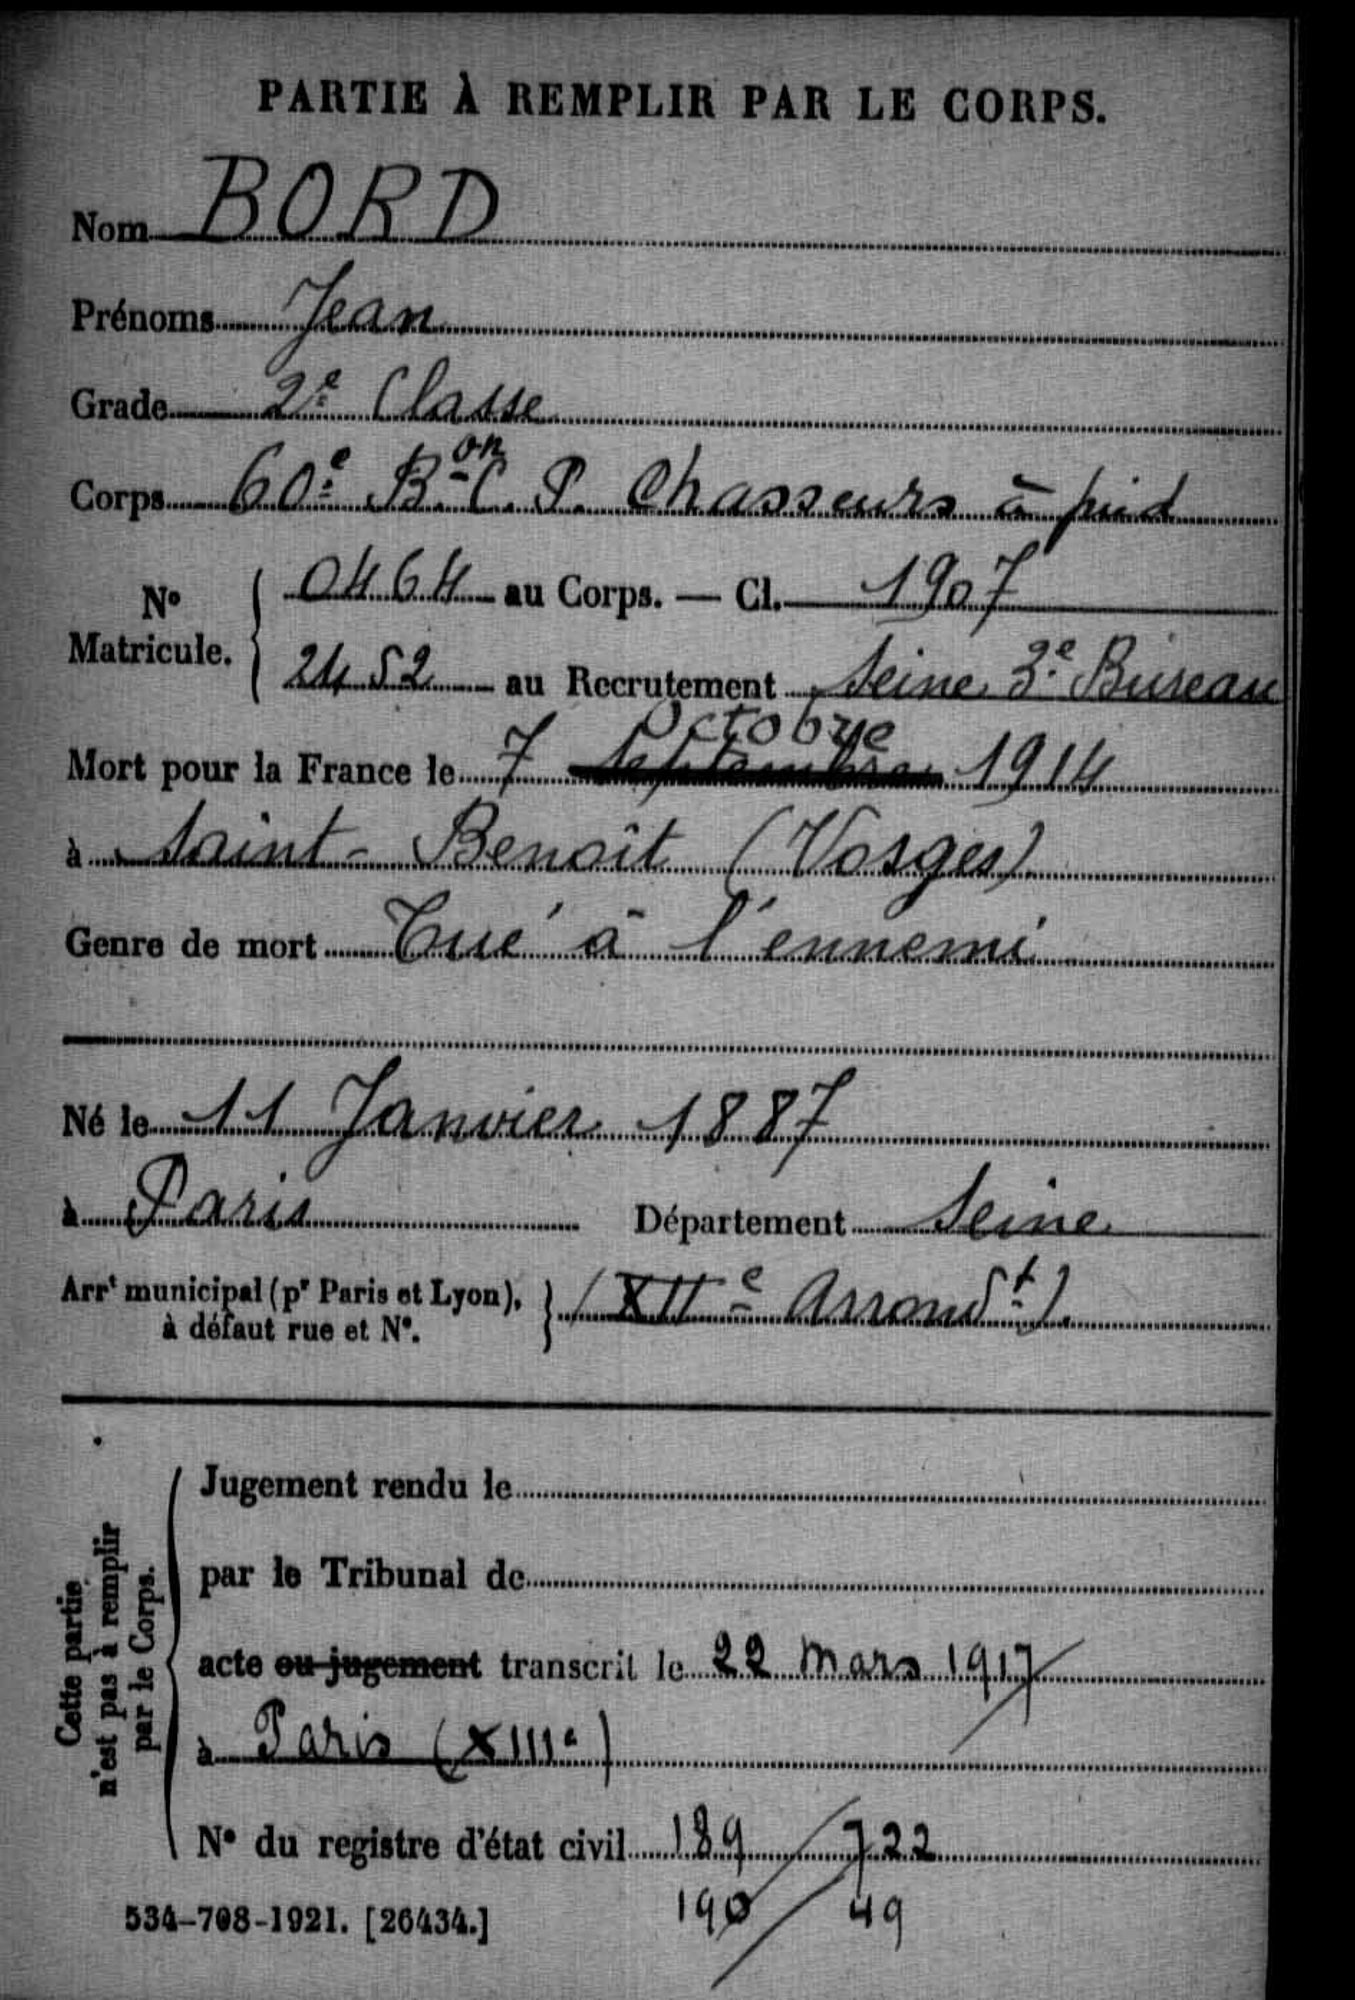 PARTIE À REMPLIR PAR LE CORPS.
Nom BORD
Prénoms Jean
Grade 2e Classe
Corps 60e Bon C. P. Chasseurs à pied
No Matricule. 0464 au Corps. — Cl. 1907
2452 au Recrutement Seine 3e Bureau
Octobre
Mort pour la France le 7 Septembre 1914
à Saint-Benoît (Vosges)
Genre de mort Tué à l'ennemi
Né le 11 Janvier 1887
à Paris Département Seine
Arrt municipal (pr Paris et Lyon), à défaut rue et No. (XIIe Arrondt)
Cette partie n'est pas à remplir par le Corps.
Jugement rendu le
par le Tribunal de
acte ou jugement transcrit le 22 mars 1917
à Paris (XIIIe)
No du registre d'état civil 189/722
190/49
534-708-1921. [26434.]